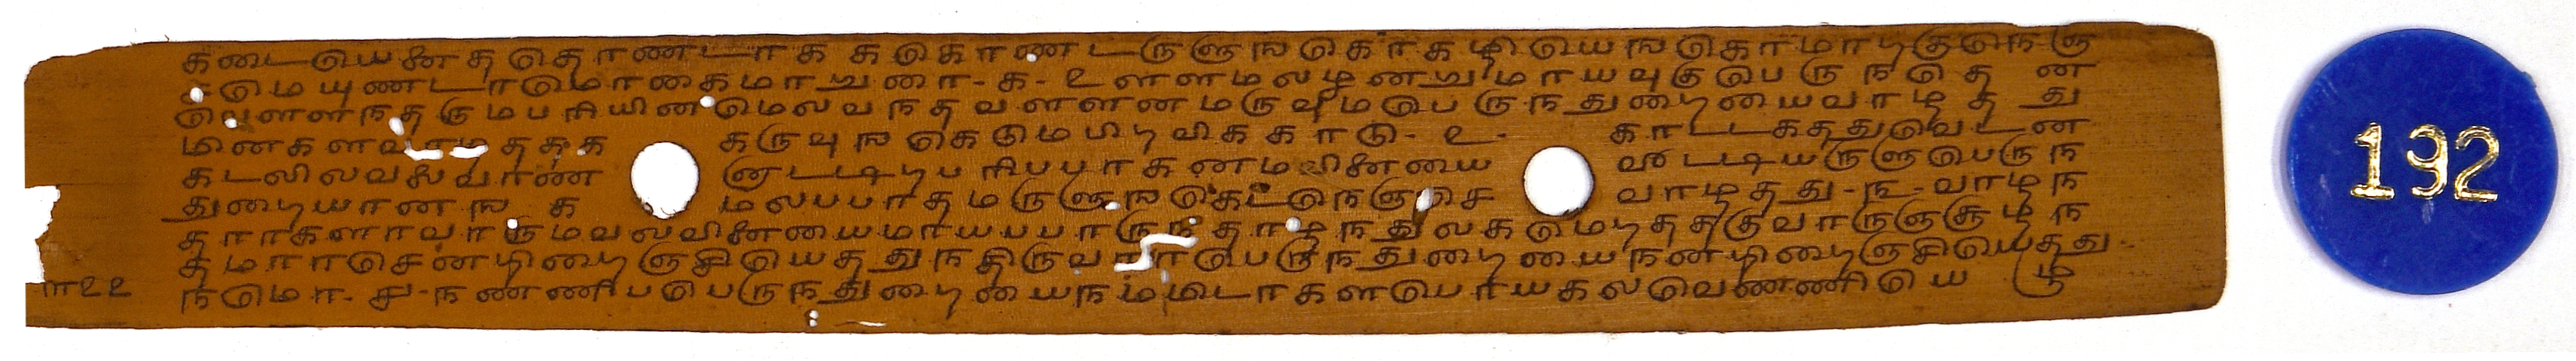 கடையெனத தொணடாக க கொணடருளுஙகொகழியெஙகொமாறகுநெஞ
மெயுணடாமொகைமாறுணா-க-உளளமலழனறுமாயவுகுபெருநதெ ன
வெளளநதருமபரியினமெலவநதவளளனமருவுமபெருநதுறையைவாழத து
மினகளவா தகக கருவுஙகெடுமபிறவிககாடு-உ- காடடகததுவெடன
கடலிலவலவாண ஞடடிறபரிபபாகனமவினையை வீடடியருளுபெருந
துறையானங க மலபபாதமருளுஙகெடநெஞசெ வாழதது-ந-வாழந
தாரகளாவாருமவலவினையைமாயபபாருநதாழநதுலகமெறததகுவாருஞசூழந
தமராரசெனறிறைஞசியெததுநதிருவாரபெருநதுறையைநனறிறைஞசியெதது
நமொ-சு-நணணிபபெருநதுறையைநமமிடாகளபொயகலவெணணியெ ழு
ா௨௨
192